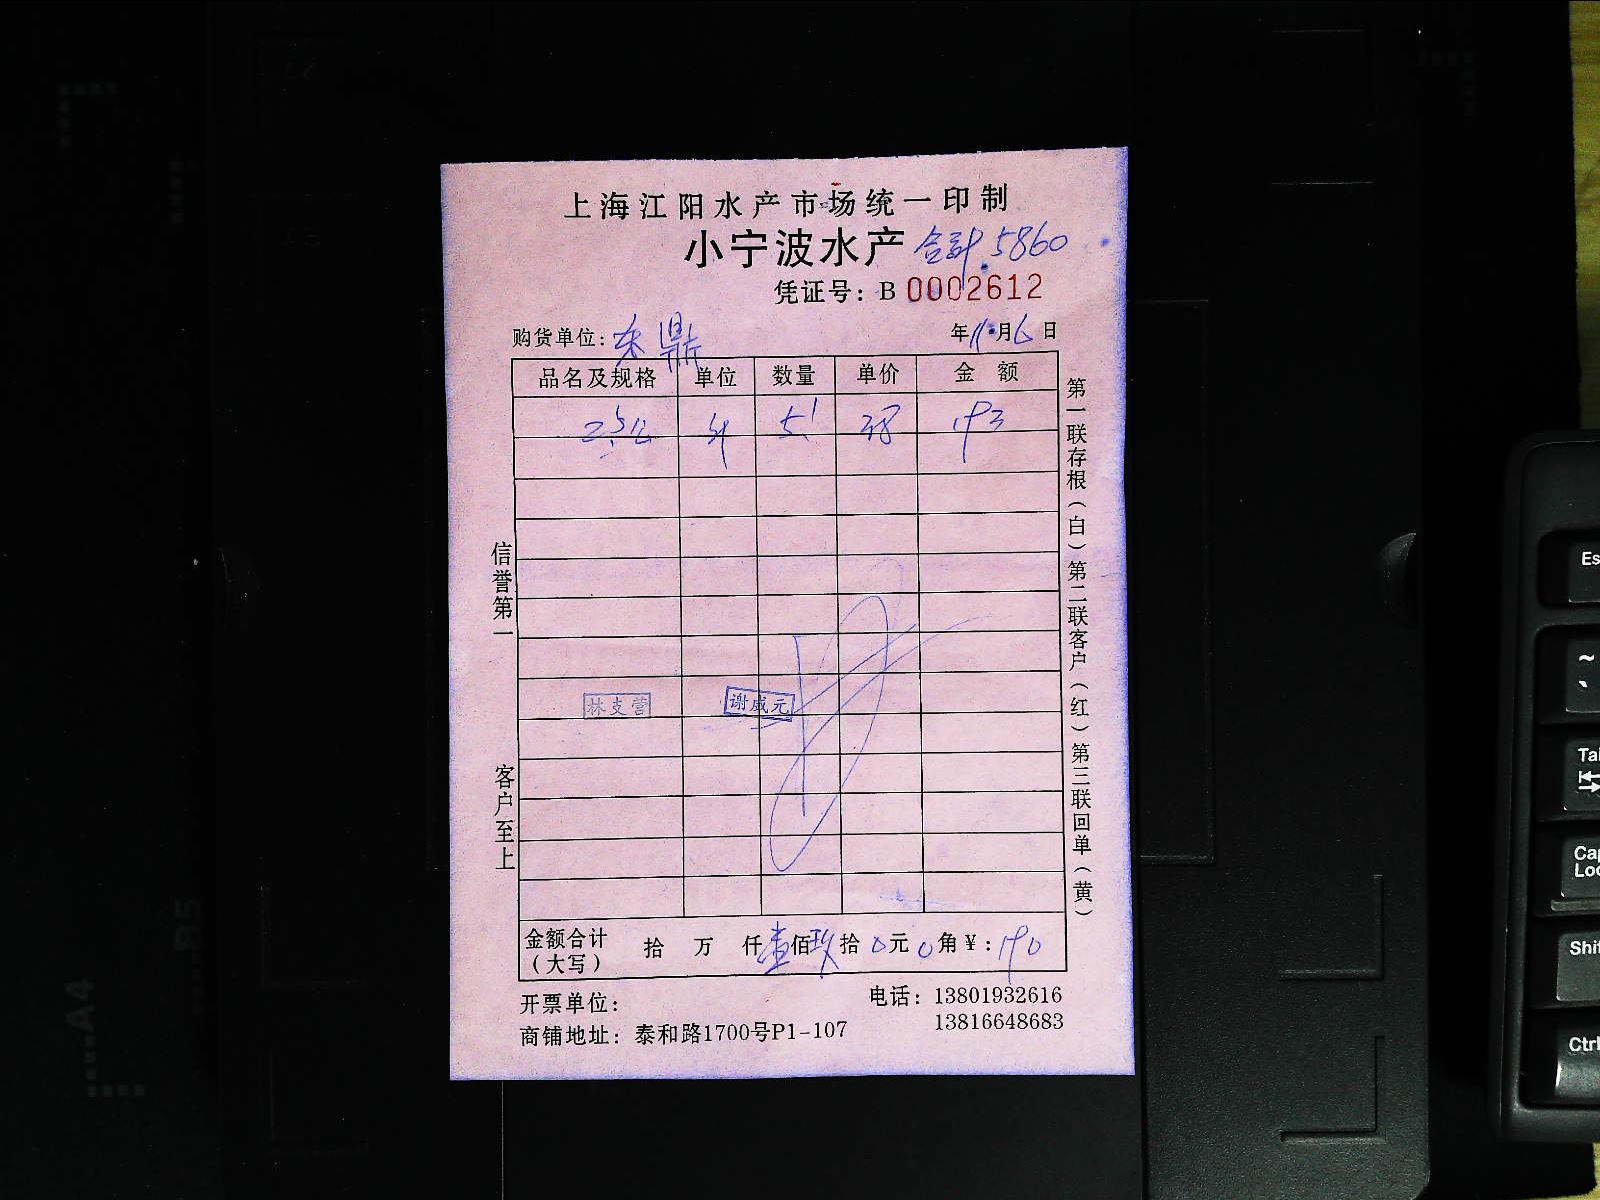 上海江阳水产市场统一印制
小宁波水产 合计 5860
凭证号：B 0002612
购货单位：东鼎 年 11 月 6 日
品名及规格 单位 数量 单价 金 额
斤 5.1 38 193
信誉第一
客户至上
林支营 谢咸元
第一联存根（白）第二联客户（红）第三联回单（黄）
金额合计（大写） 拾 万 仟 壹 佰 玖 拾 0 元 0 角 ¥：190
开票单位： 电话：13801932616
商铺地址：泰和路1700号P1-107 13816648683
A4
B5
Es
~
`
Ta
Ca
Loc
Shi
Ctrl